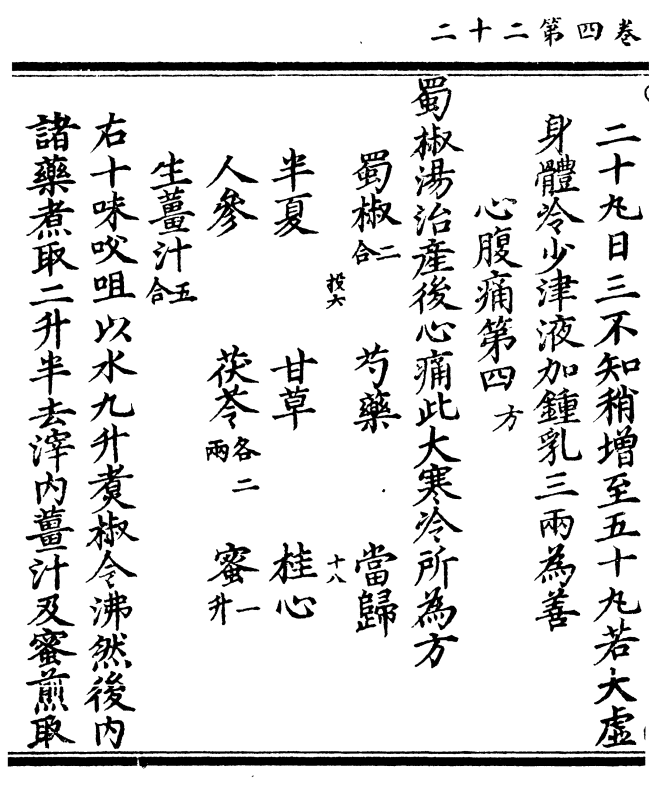 卷四第二十二
二十丸日三不知稍增至五十丸若大虛
身體冷少津液加鍾乳三兩為善
心腹痛第四方
蜀椒湯治產後心痛此大寒冷所為方
蜀椒二合　芍藥　當歸
投六　十八
半夏　甘草　桂心
人參　茯苓各二兩　蜜一升
生薑汁五合
右十味㕮咀以水九升煑椒令沸然後內
諸藥煮取二升半去滓內薑汁及蜜煎取